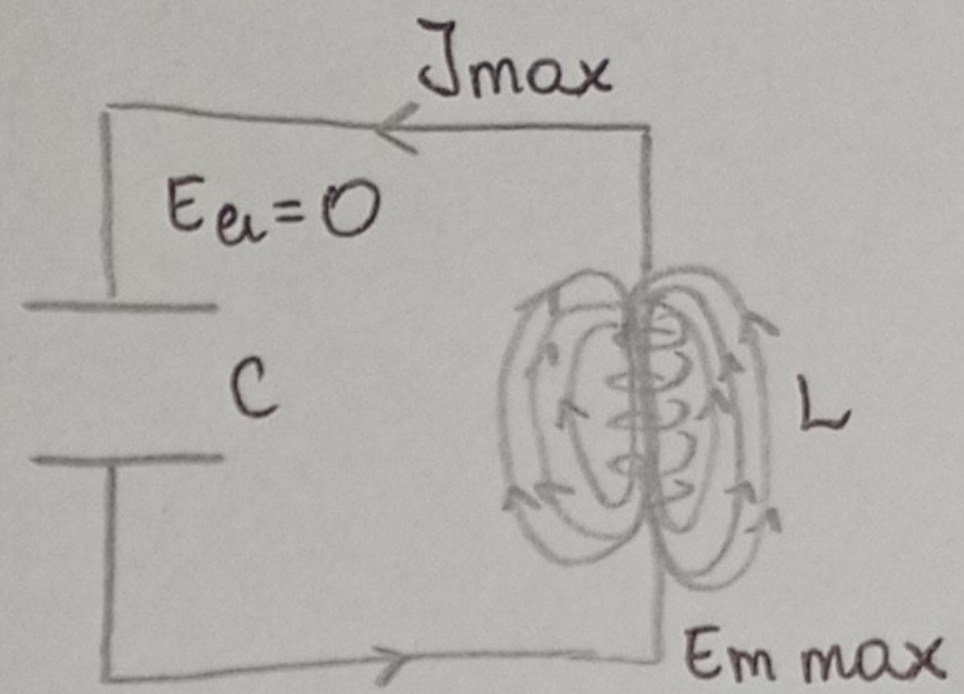 Jmax
Eel=0
C
L
Em max